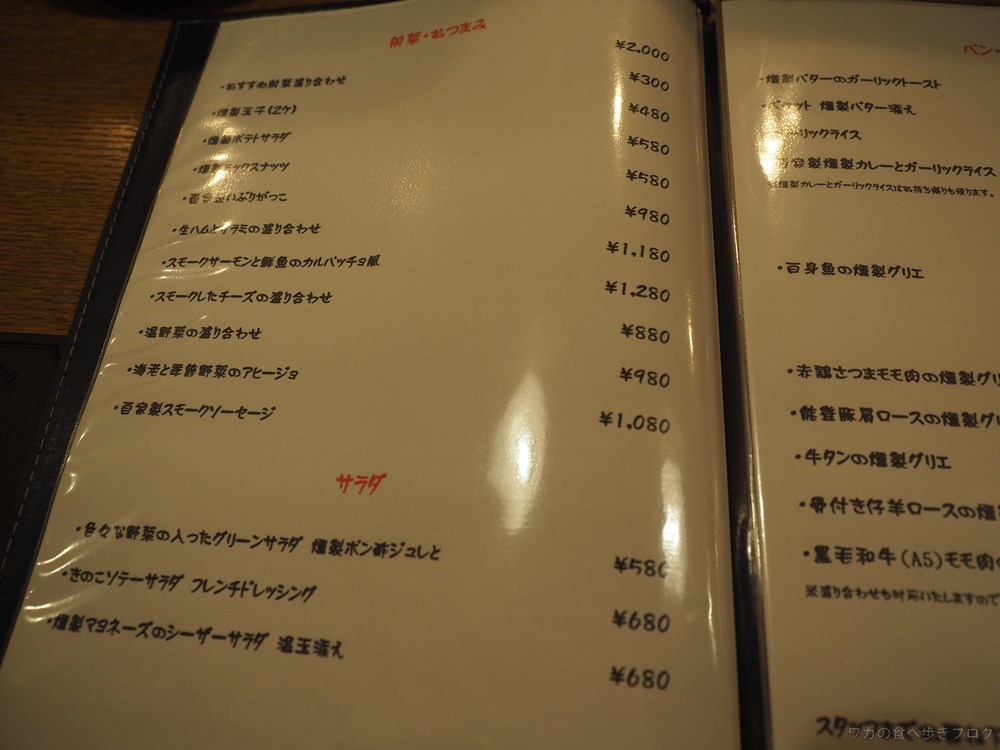 前菜・おつまみ
・おすすめ前菜盛り合わせ ¥2,000
・燻製玉子(2ケ) ¥300
・燻製ポテトサラダ ¥480
・燻製ミックスナッツ ¥580
・自家製いぶりがっこ ¥580
・生ハムとサラミの盛り合わせ ¥980
・スモークサーモンと鮮魚のカルパッチョ風 ¥1,180
・スモークしたチーズの盛り合わせ ¥1,280
・温野菜の盛り合わせ ¥880
・海老と季節野菜のアヒージョ ¥980
・自家製スモークソーセージ ¥1,080
サラダ
・色々な野菜の入ったグリーンサラダ 燻製ポン酢ジュレと ¥580
・きのこソテーサラダ フレンチドレッシング ¥680
・燻製マヨネーズのシーザーサラダ 温玉添え ¥680
パン・
・燻製バターのガーリックトースト
・バケット 燻製バター添え
ガーリックライス
自家製燻製カレーとガーリックライス
※燻製カレーとガーリックライスはお持ち帰りも承ります。
・白身魚の燻製グリエ
・赤鶏さつまモモ肉の燻製グリ
・能登豚肩ロースの燻製グ
・牛タンの燻製グリエ
・骨付き仔羊ロースの燻
・黒毛和牛(A5)モモ肉
※盛り合わせも対応いたしますので
スタッフまで
ワカの食べ歩きブログ